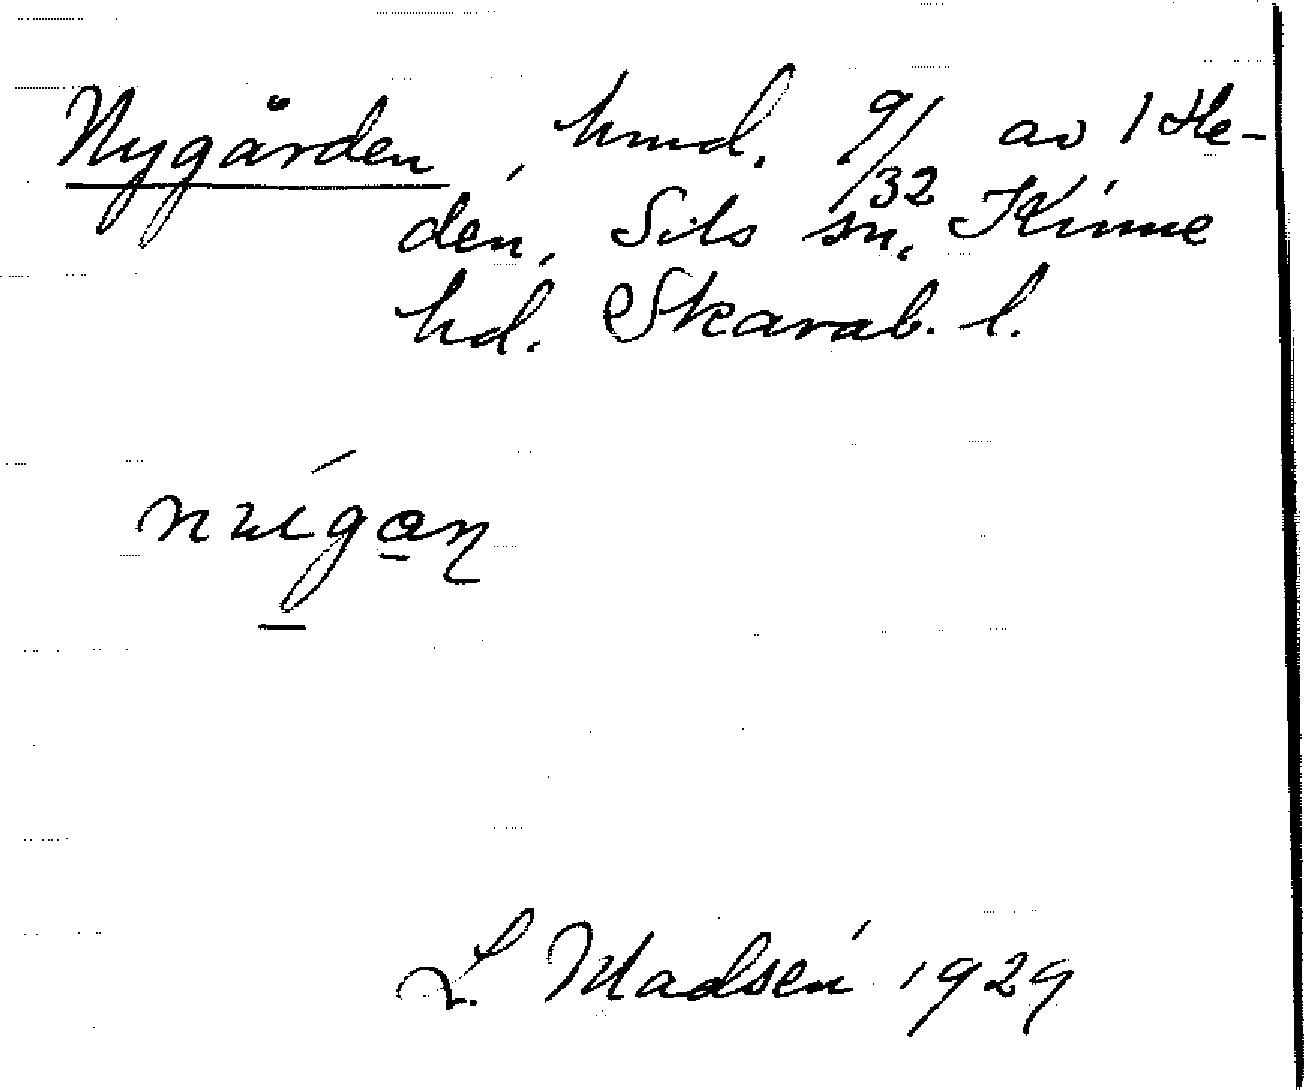 Nygården, hmd. 9/32 av 1 He-
den, Sils sn, Kinne
hd. Skarab. l.
L. Madsén 1929